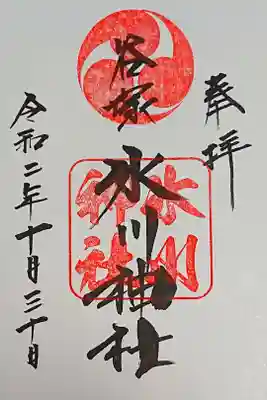 奉拝
谷塚 氷川神社
氷川
神社
令和二年十月三十日